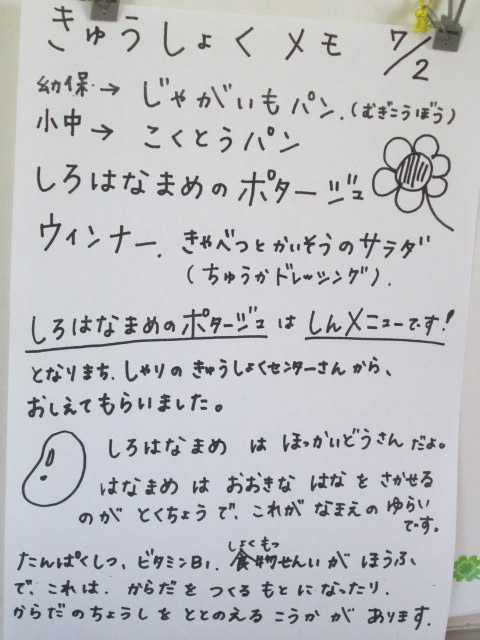 きゅうしょくメモ 7/2
幼保→ じゃがいもパン.(むぎこうぼう)
小中→ こくとうパン
しろはなまめのポタージュ
ウィンナー. きゃべつとかいそうのサラダ
(ちゅうかドレッシング).
しろはなまめのポタージュ は しんメニューです!
となりまち.しゃりの きゅうしょくセンターさんから、
おしえてもらいました。
しろはなまめ は ほっかいどうさん だよ。
はなまめ は おおきな はな を さかせる
のが とくちょうで、これが なまえの ゆらい
です。
たんぱくしつ、ビタミンB1. 食物せんい が ほうふ、
しょくもつ
で、これは. からだ を つくる もと に なったり.
からだのちょうし を ととのえる こうか が あります.